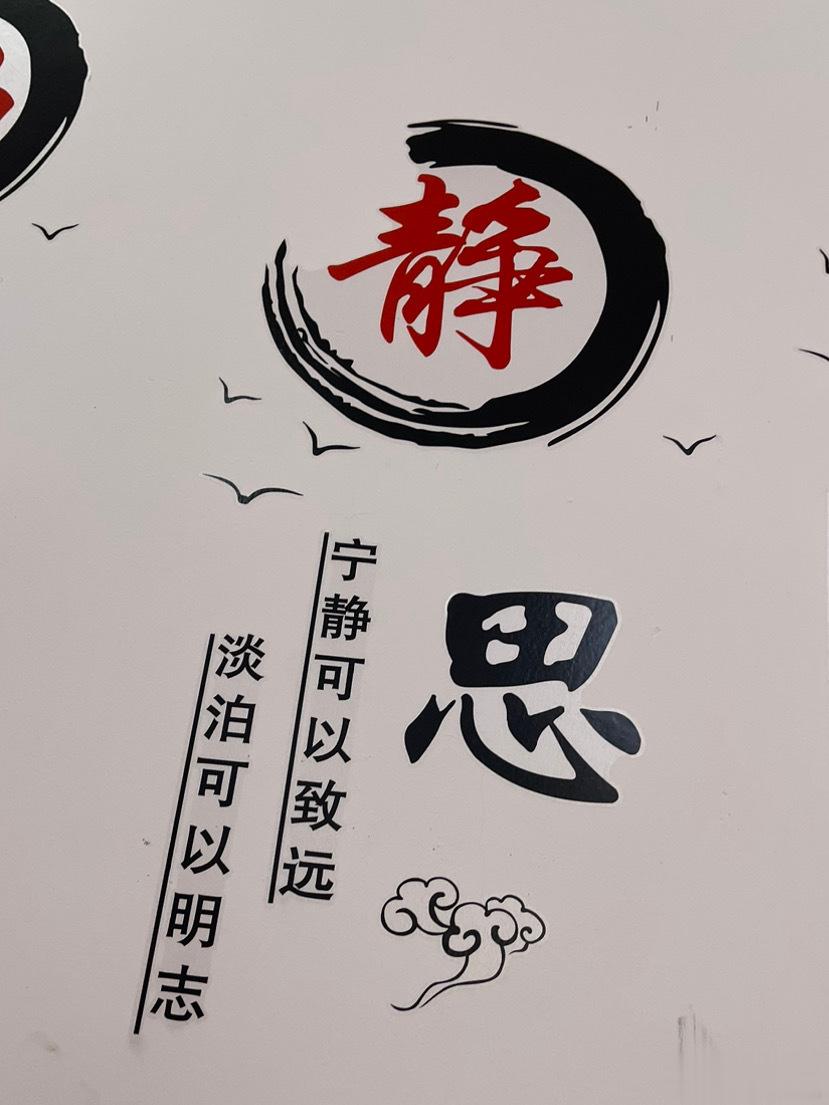 静
思
宁静可以致远
淡泊可以明志